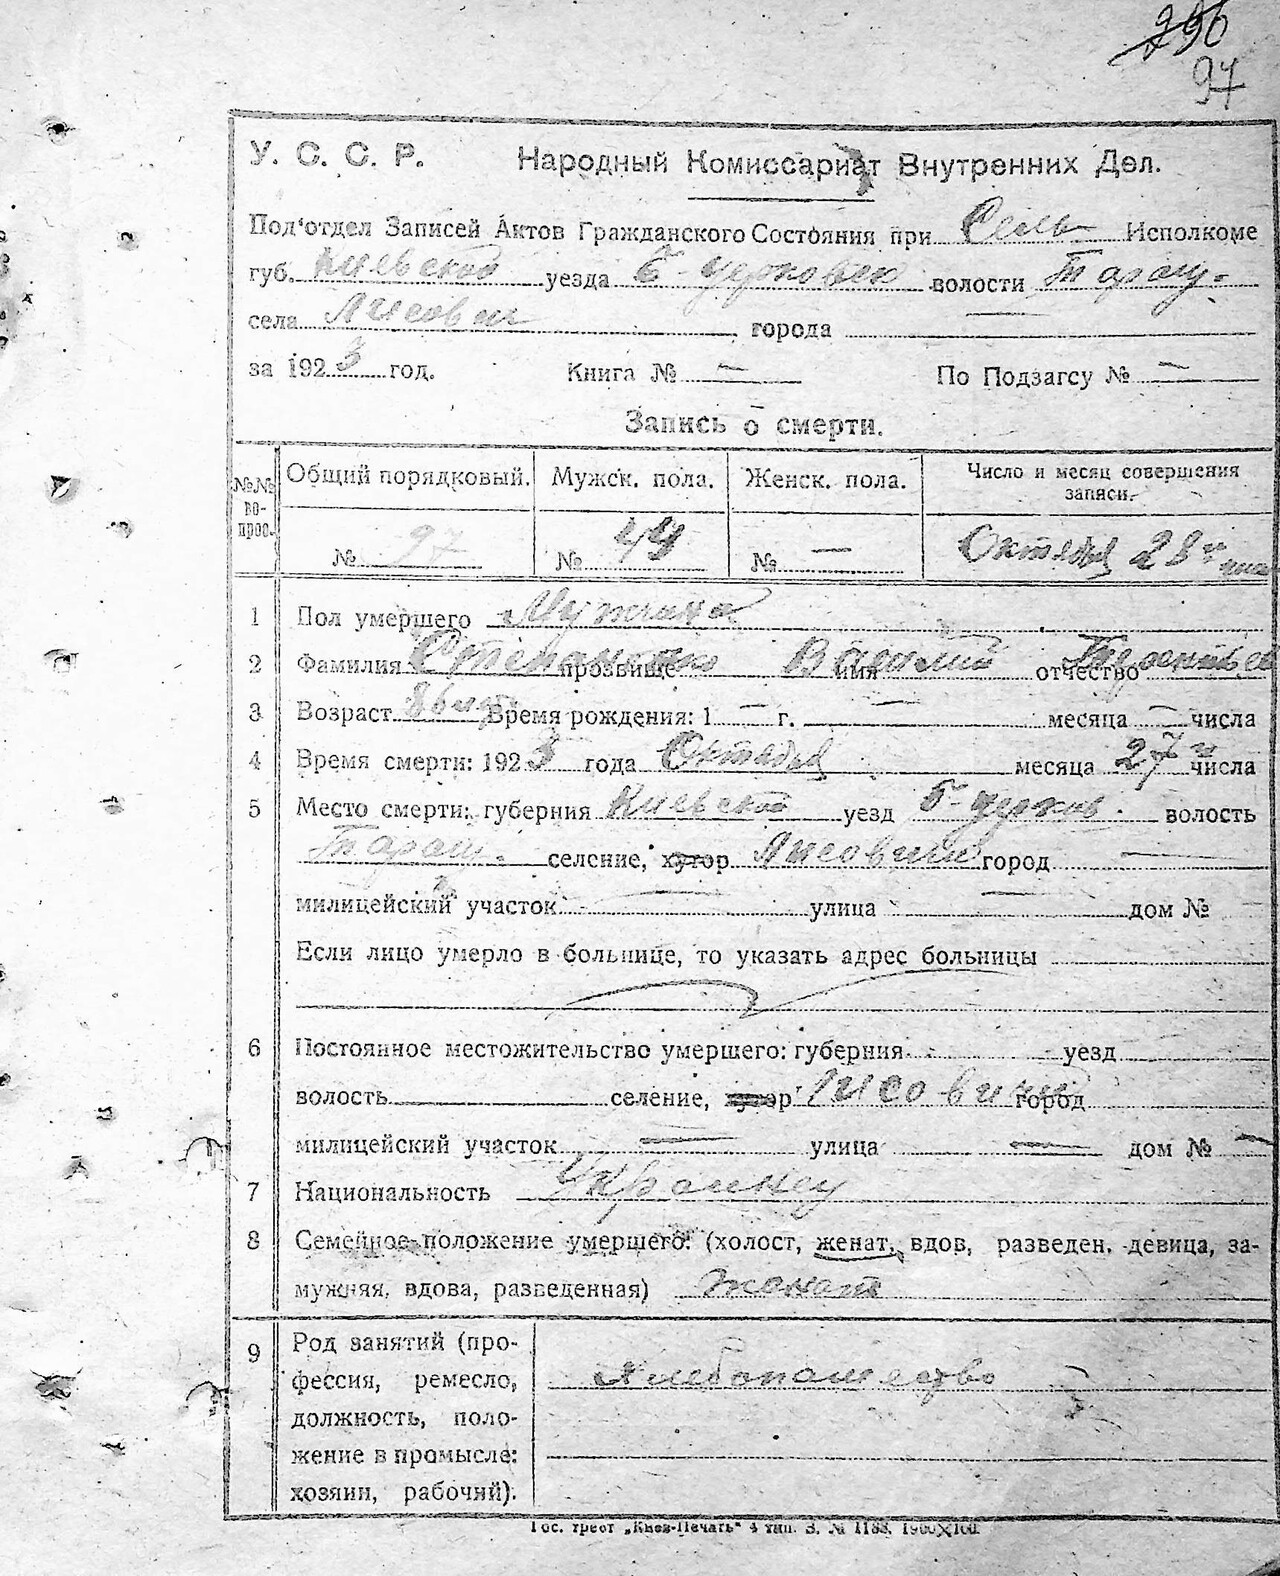 290
97
У. С. С. Р. Народный Комиссариат Внутренних Дел.
Под'отдел Записей Актов Гражданского Состояния при Сель Исполкоме
губ. Киевской уезда Б-Церковск волости Таращ.
села Лисович города
за 1923 год. Книга № — По Подзагсу № —
Запись о смерти.
№№ вопрос. Общий порядковый. Мужск. пола. Женск. пола. Число и месяц совершения записи.
№ 97 № 44 № — Октября 28го
1 Пол умершего Мужчина
2 Фамилия Степаненко прозвище имя Василий отчество Терентьев
3 Возраст 86 лет Время рождения: 1 — г. — месяца — числа
4 Время смерти: 1923 года Октября месяца 27го числа
5 Место смерти: губерния Киевской уезд Б-Церков. волость
Таращ. селение, хутор Лисовичи город —
милицейский участок — улица — дом №
Если лицо умерло в больнице, то указать адрес больницы
6 Постоянное местожительство умершего: губерния уезд
волость селение, хутор Лисовичи город
милицейский участок — улица — дом № —
7 Национальность Украинец
8 Семейное положение умершего: (холост, женат, вдов, разведен, девица, за-
мужняя, вдова, разведенная) женат
9 Род занятий (про-
фессия, ремесло, Хлебопашество
должность, поло-
жение в промысле:
хозяин, рабочий).
Гос. трест „Киев-Печать“ 4 тип. З. № 1188. 1900×100.